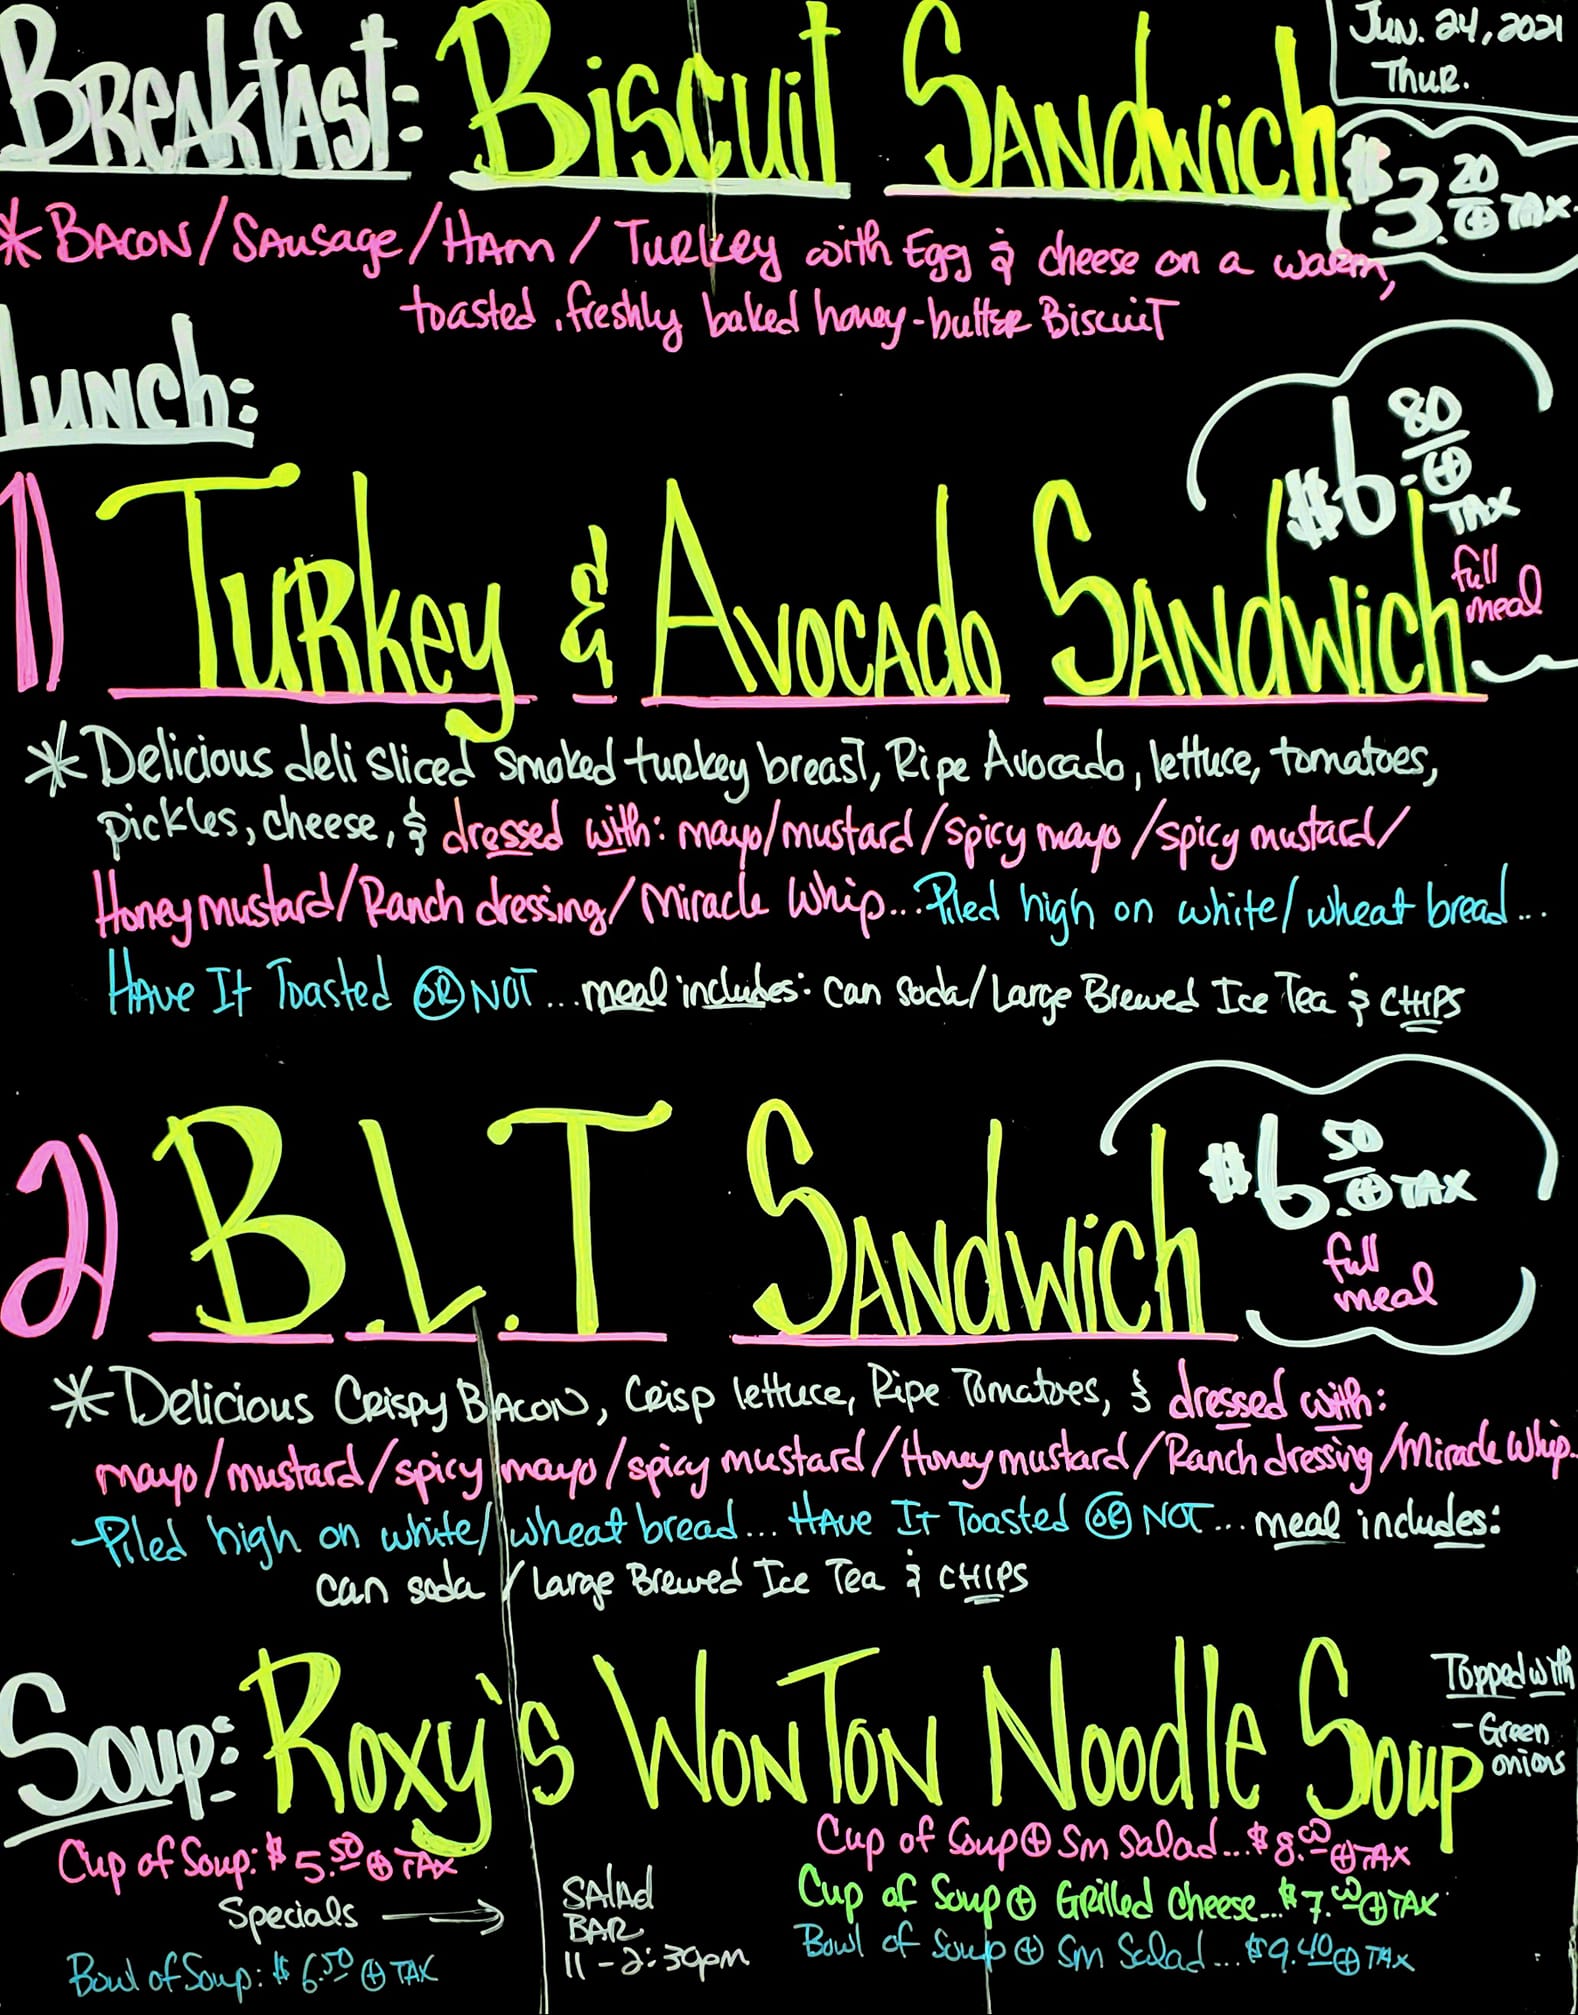 Breakfast: Biscuit Sandwich
Jun. 24, 2021
Thur.
$3.20 + TAX
* BACON/Sausage/HAM/Turkey with Egg & cheese on a warm,
toasted, freshly baked honey-butter Biscuit
Lunch:
$6.80 + TAX
full meal
1) Turkey & Avocado Sandwich
* Delicious deli sliced smoked turkey breast, Ripe Avocado, lettuce, tomatoes,
pickles, cheese, & dressed with: mayo/mustard/spicy mayo/spicy mustard/
Honey mustard/Ranch dressing/Miracle Whip... Piled high on white/wheat bread...
Have It Toasted OR NOT... meal includes: can soda/Large Brewed Ice Tea & CHIPS
2) B.L.T Sandwich
$6.50 + TAX
full meal
* Delicious Crispy BACON, Crisp lettuce, Ripe Tomatoes, & dressed with:
mayo/mustard/spicy mayo/spicy mustard/Honey mustard/Ranch dressing/Miracle Whip..
-Piled high on white/wheat bread... Have It Toasted OR NOT... meal includes:
can soda/Large Brewed Ice Tea & CHIPS
Soup: Roxy's WonTon Noodle Soup
Topped with
- Green onions
Cup of Soup: $5.50 + TAX
Specials →
Bowl of Soup: $6.50 + TAX
SALAD
BAR
11 - 2:30pm
Cup of Soup + Sm Salad... $8.00 + TAX
Cup of Soup + Grilled Cheese... $7.00 + TAX
Bowl of Soup + Sm Salad... $9.40 + TAX